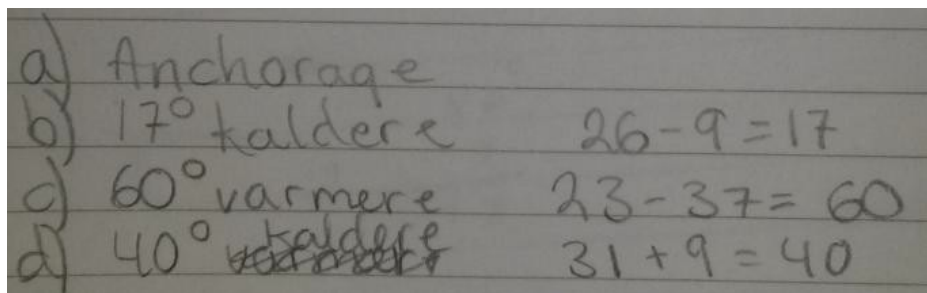 a) Anchorage
b) 17° kaldere 26-9=17
c) 60° varmere 23-37= 60
d) 40° kaldere 31+9=40